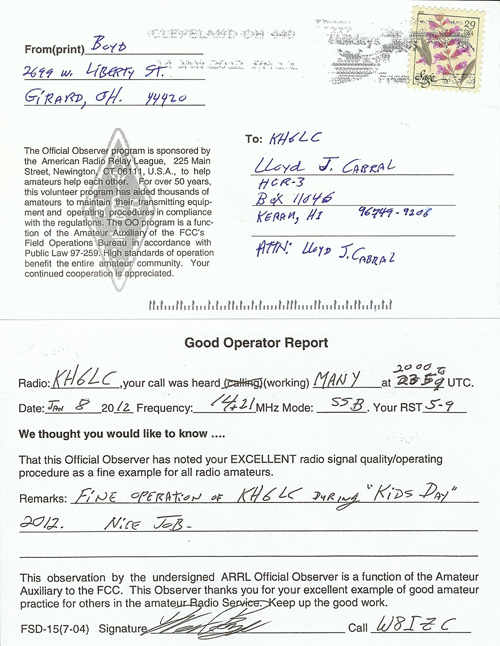 CLEVELAND OH 440
From(print) Boyd
2699 W. Liberty St.
Girard, OH. 44420
29
Sage
To: KH6LC
Lloyd J. Cabral
HCR-3
Box 11046
Keaau, HI 96749-9206
ATTN: Lloyd J. Cabral
The Official Observer program is sponsored by
the American Radio Relay League, 225 Main
Street, Newington, CT 06111, U.S.A., to help
amateurs help each other. For over 50 years,
this volunteer program has aided thousands of
amateurs to maintain their transmitting equip-
ment and operating procedures in compliance
with the regulations. The OO program is a func-
tion of the Amateur Auxiliary of the FCC's
Field Operations Bureau in accordance with
Public Law 97-259. High standards of operation
benefit the entire amateur community. Your
continued cooperation is appreciated.
Good Operator Report
Radio: KH6LC, your call was heard (calling)(working) MANY at 2000 UTC.
Date: Jan 8 2012 Frequency: 14+21 MHz Mode: SSB. Your RST 5-9
We thought you would like to know ....
That this Official Observer has noted your EXCELLENT radio signal quality/operating
procedure as a fine example for all radio amateurs.
Remarks: Fine operation of KH6LC during "Kids Day"
2012. Nice Job-
This observation by the undersigned ARRL Official Observer is a function of the Amateur
Auxiliary to the FCC. This Observer thanks you for your excellent example of good amateur
practice for others in the amateur Radio Service. Keep up the good work.
FSD-15(7-04) Signature Call W8IZC